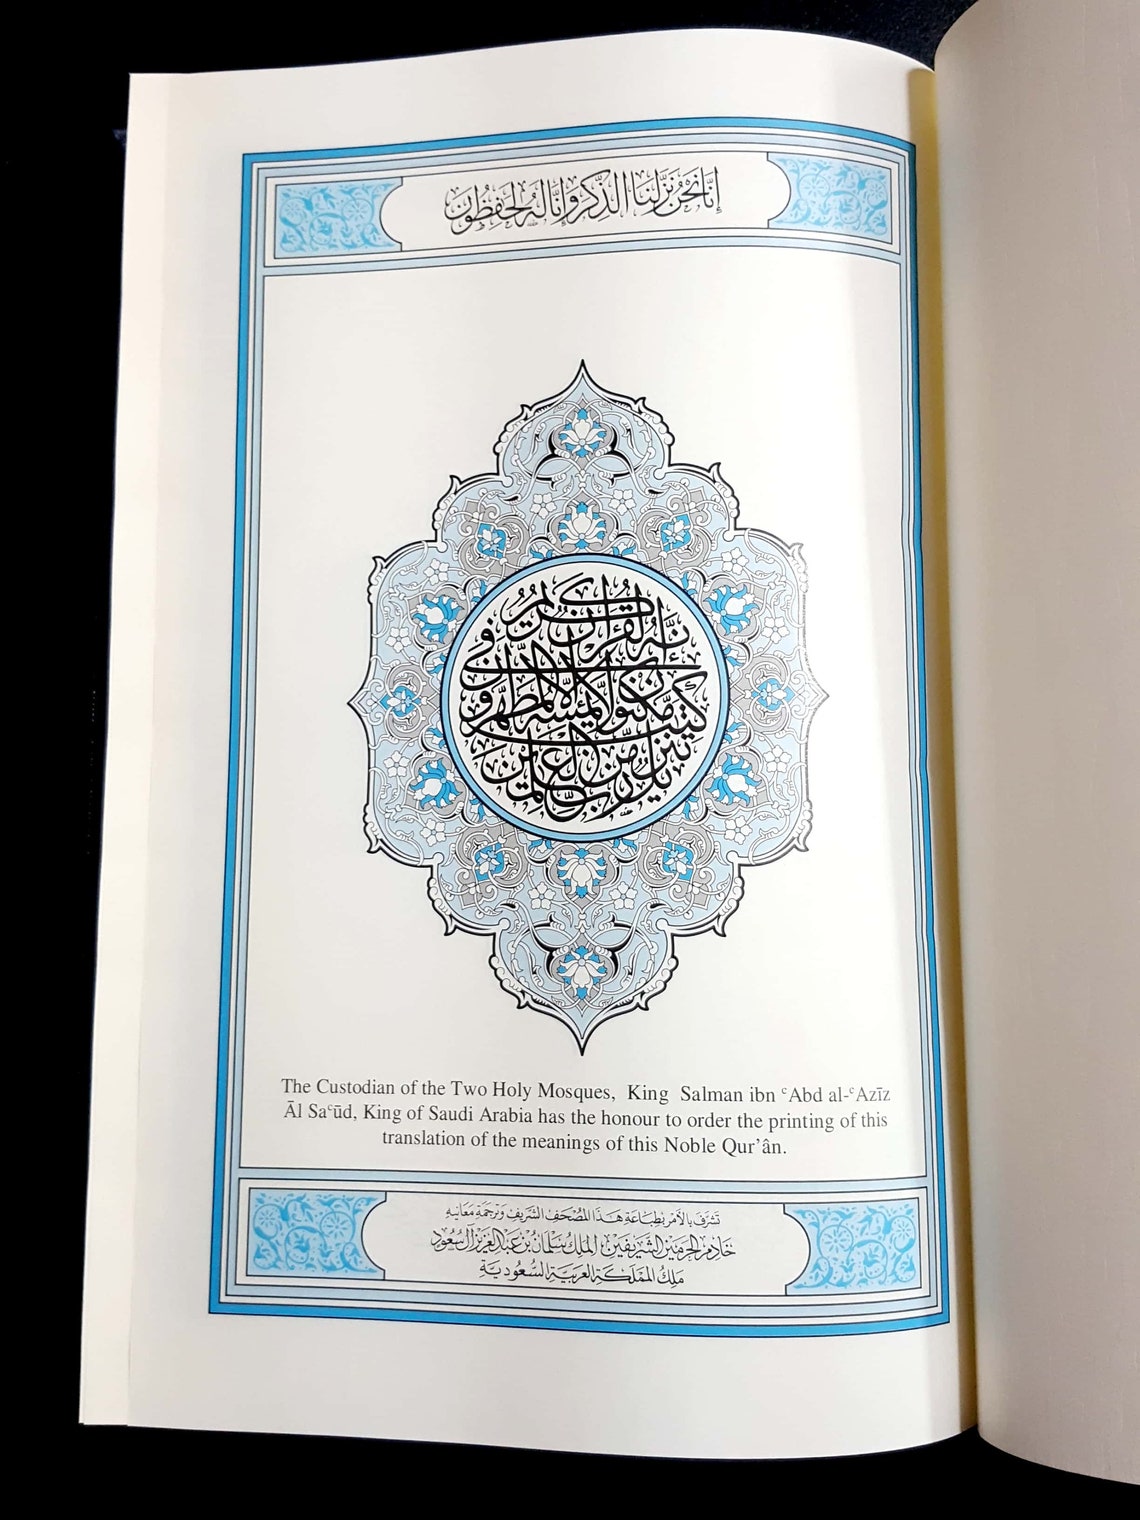 إنا نحن نزلنا الذكر وإنا له لحفظون
إنه لقرءان كريم
في كتب مكنون لا يمسه إلا المطهرون
تنزيل من رب العلمين
The Custodian of the Two Holy Mosques, King Salman ibn ʿAbd al-ʿAzīz
Āl Saʿūd, King of Saudi Arabia has the honour to order the printing of this
translation of the meanings of this Noble Qur’ân.
تشرف بالأمر بطباعة هذا المصحف الشريف وترجمة معانيه
خادم الحرمين الشريفين الملك سلمان بن عبد العزيز آل سعود
ملك المملكة العربية السعودية